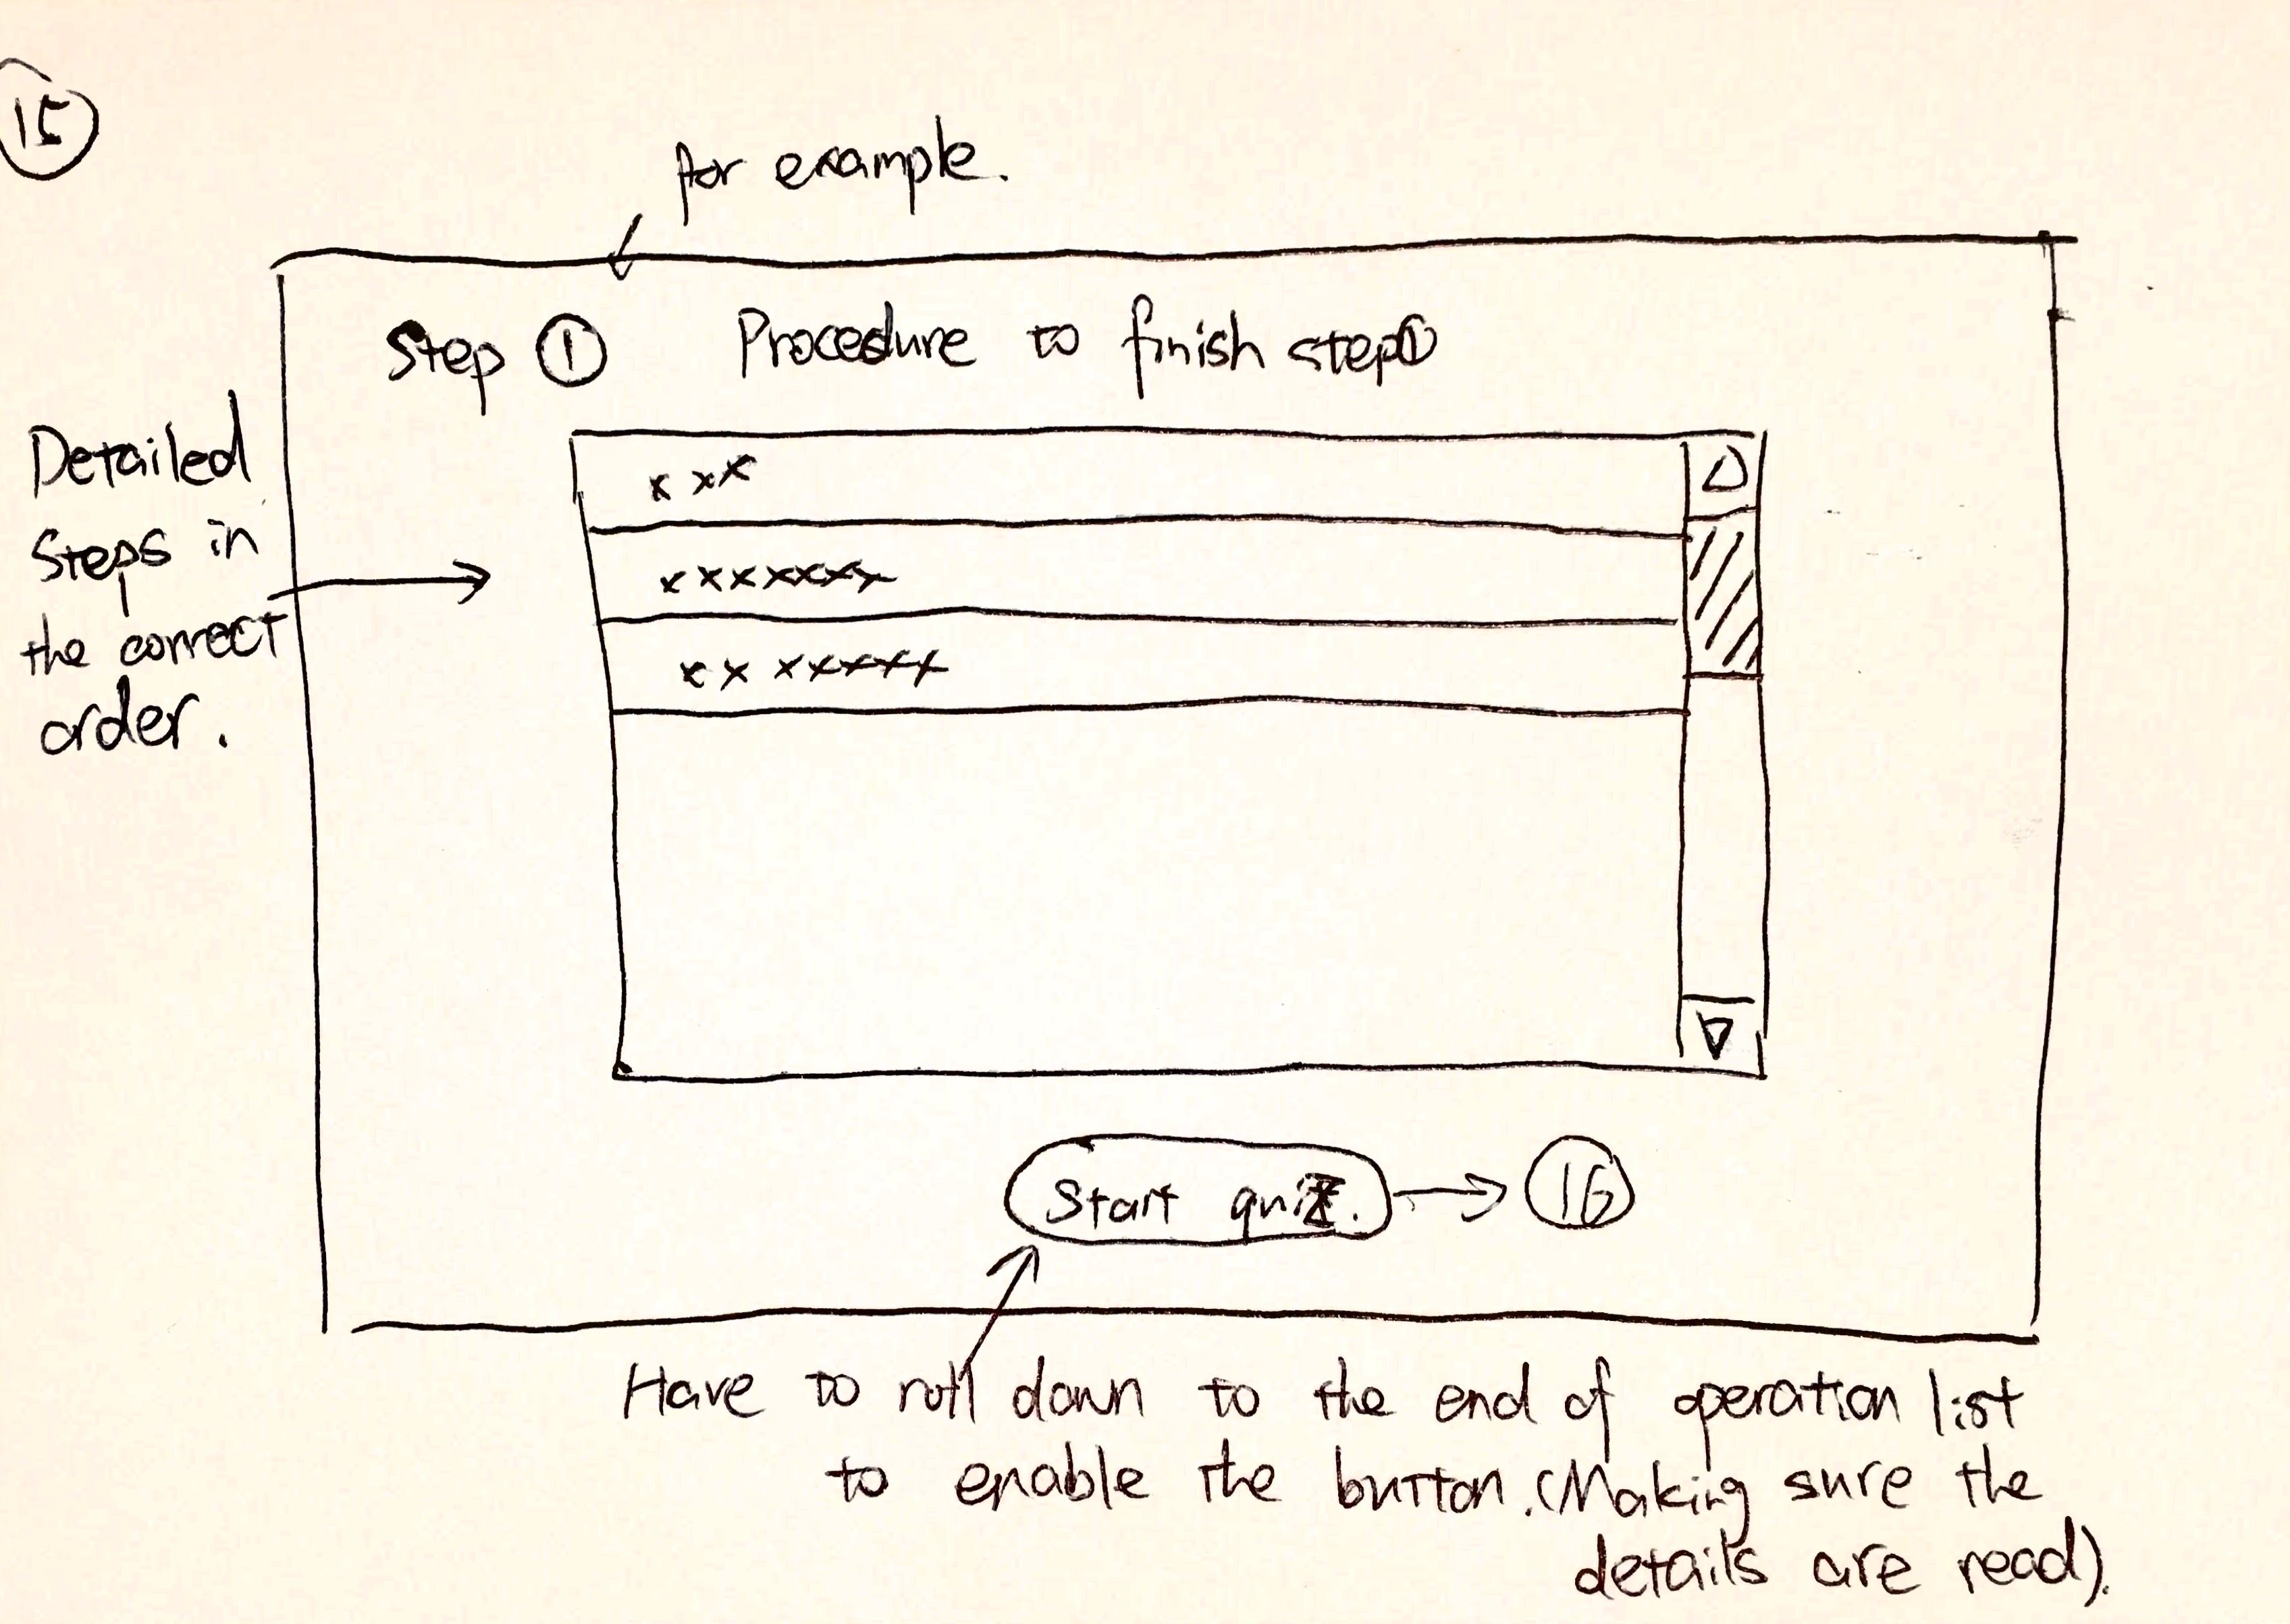 15
for example.
Step ① Procedure to finish step①
Detailed
steps in
the correct
order.
x xx
xxxxxxx
xx xxxxx
Start quiz. → 16
Have to roll down to the end of operation list
to enable the button. (Making sure the
details are read).